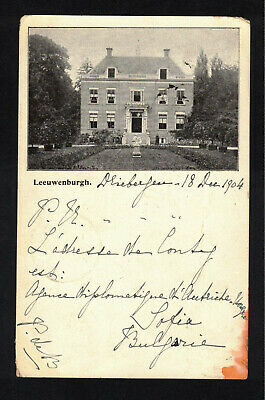 Leeuwenburgh. Driebergen - 18 Dec 1904
P. K. - " - "
L'adresse de Conty
est:
Agence diplomatique d'Autriche
Sofia
Bulgarie
P. de B